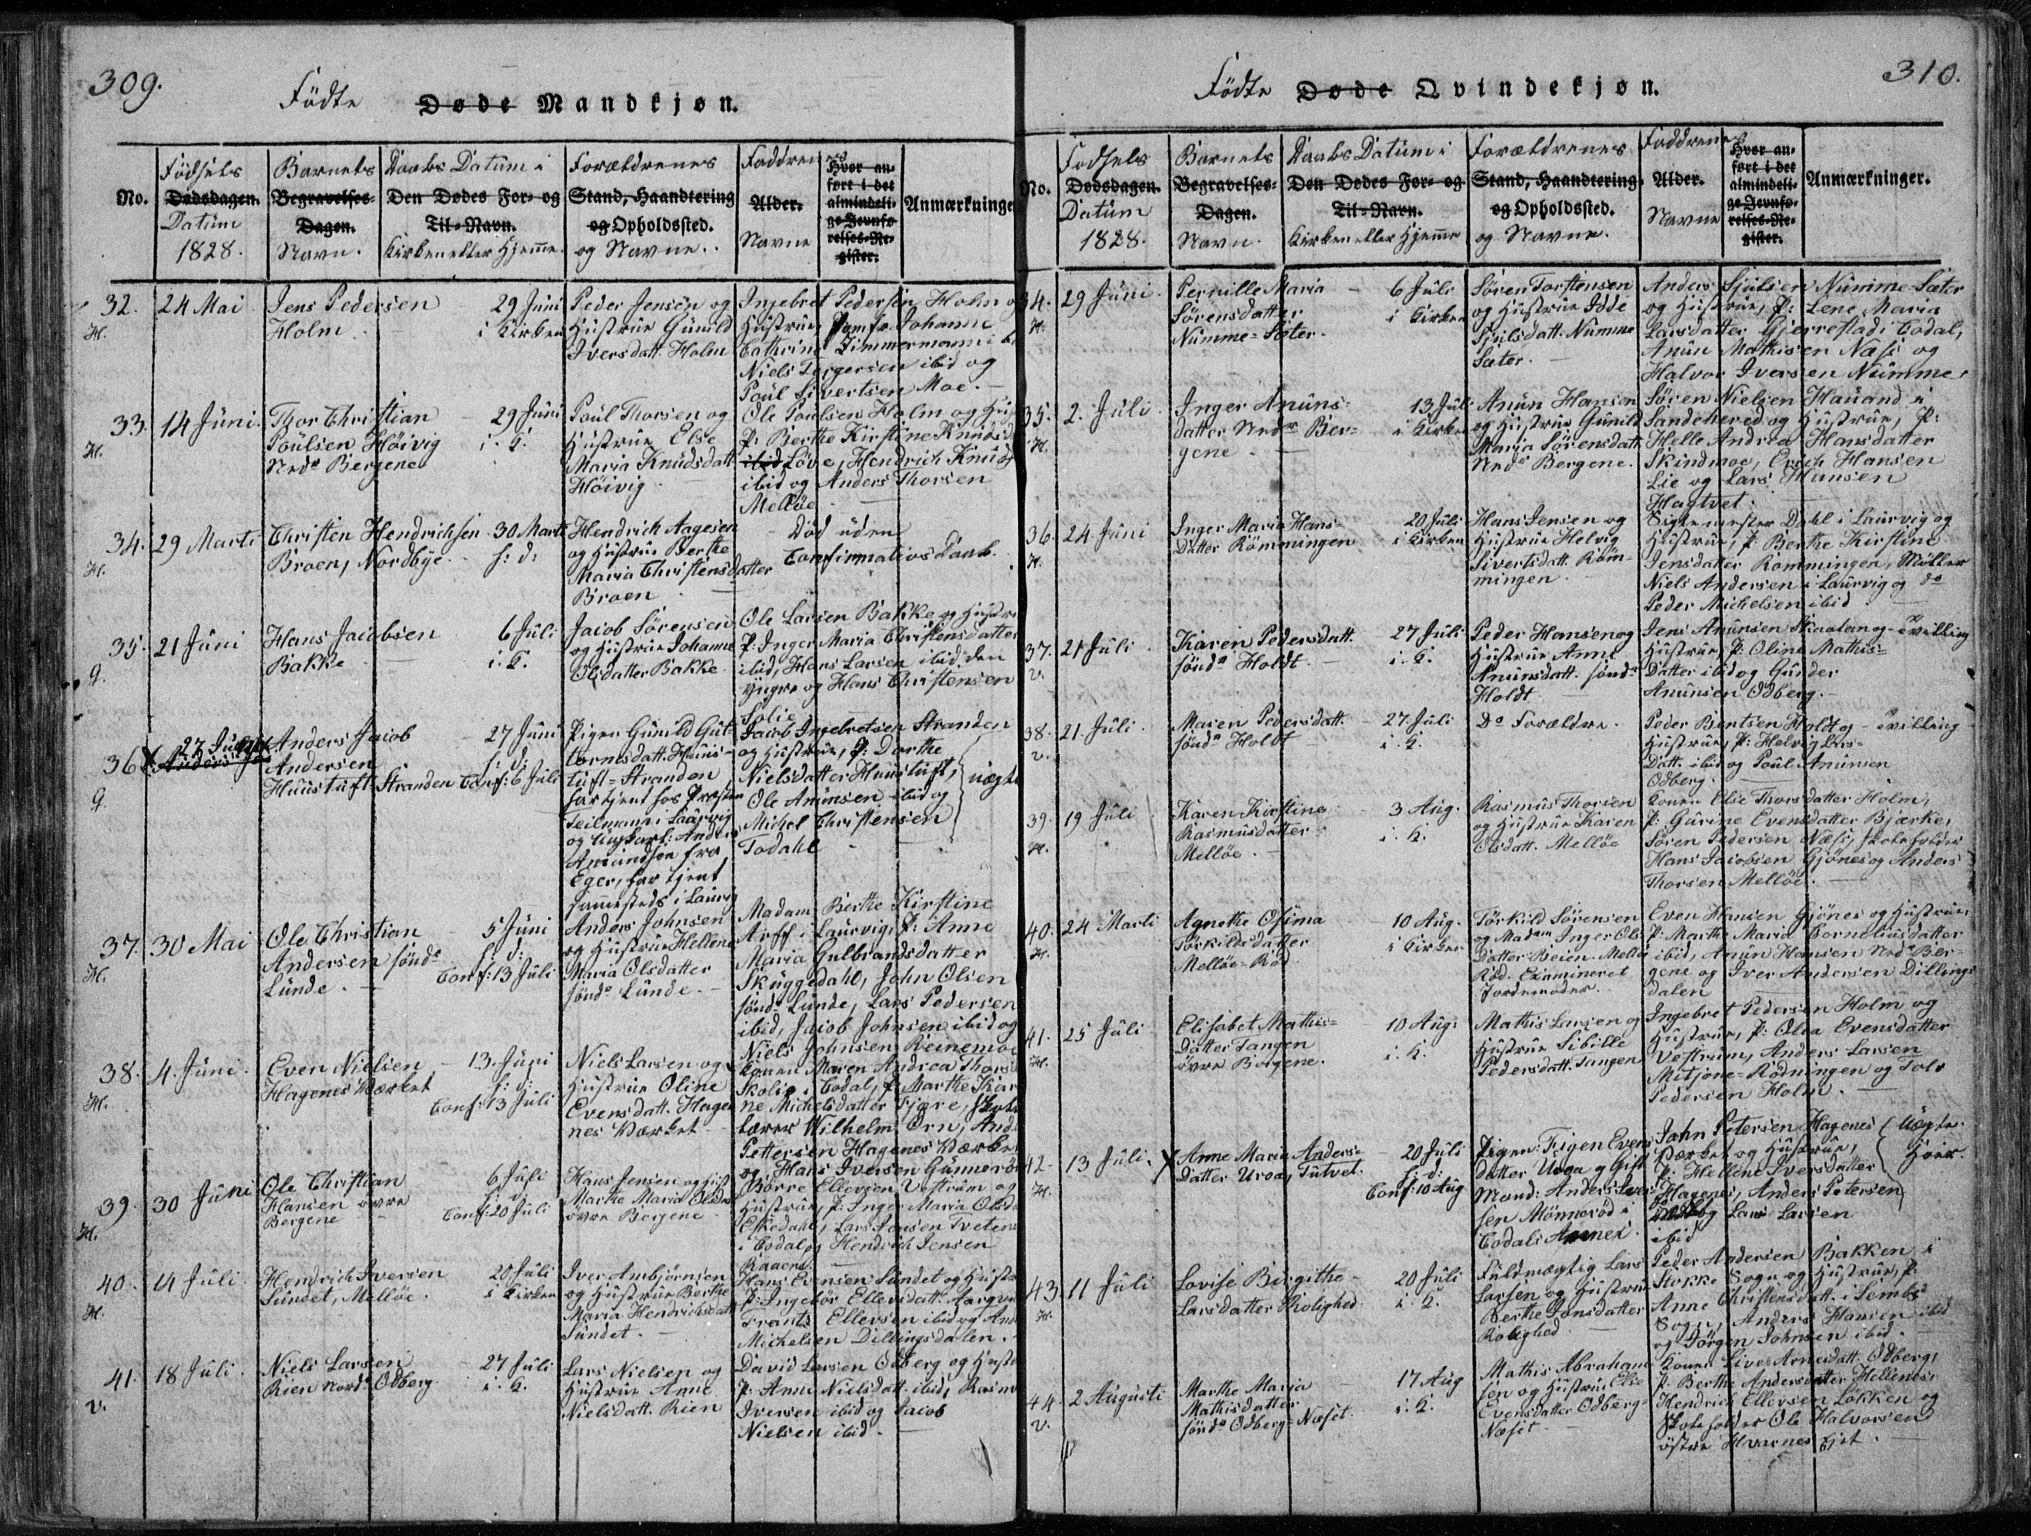 309.
Fødte Døde Mandkjøn.
No.
Fødsels Dødsdagen. Datum 1828.
Barnets Begravelses-Dagen. Navn.
Daabs Datum i Den Dødes For- og Til-Navn. Kirken eller Hjemme
Forældrenes Stand, Haandtering og Opholdssted. og Navne.
Faddrenes Alder. Navne
Hvor anført i det almindelige Jevnførelses-Register.
Anmærkninger
32. 24 Mai
H.
Jens Pedersen
Holm
29 Juni
i Kirken
Peder Jensen og
Hustrue Gunild
Iversdatt. Holm
Ingebret Pedersen Holm
Hustrue, Jomfr. Johanne
Cathrine Zimmermann i
Niels Torgersen ibid og
Poul Sivertsen Moe.
33. 14 Juni.
H.
Thor Christian
Poulsen Høivig
Nedr. Bergene
29 Juni
i K.
Poul Thorsen og
Hustrue Else
Maria Knudsdatt.
Høivig
Ole Poulsen Holm og
P: Berthe Kirstine Knudsd
ibid Løve, Hendrich Knuds
ibid og Anders Thorsen
Melløe
34. 29 Marti
H.
Christen Hendrichsen
Broen, Nordbye
30 Marti
h: d:
Hendrich Aagesen
og Hustrue Berthe
Maria Christensdatter
Broen
Død uden
Confirmations Daab.
35. 21 Juni
q.
Hans Jacobsen
Bakke
6 Juli
i. K.
Jacob Sørensen
og Hustrue Johanne
Olsdatter Bakke
Ole Larsen Bakke og Hustrue
P: Inger Maria Christensdatter
ibid, Hans Larsen ibid den
yngre og Hans Christensen
Solie
36 X
q.
Anders Jacob
Andersen
Huustuft Stranden
27 Juni
h: d:
Conf: 6 Juli
Pigen Gunild Gut-
tormsdatt. Huus-
tuft-Stranden
har tjent hos Præsten
Teilmann i Laurvig
og Ungkarl: Anders
Amundsen fra
Eger, har tjent
sammesteds i Laurvig
Jacob Ingebretsen Stranden
og Hustrue, P: Dorthe
Nielsdatter Huustuft,
Ole Anunsen ibid og
Michel Christensen
Todahl
uægte
37. 30 Mai
H.
Ole Christian
Andersen søndr.
Lunde.
5 Juni
h: d:
Conf: 13 Juli
Anders Johnsen
og Hustrue Hellene
Maria Olsdatter
søndr. Lunde.
Madam Berthe Kirstine
Arff i Laurvig, P: Anne
Maria Gulbrandsdatter
Skuggedahl, John Olsen
søndr Lunde, Lars Pedersen
ibid, Jacob Johnsen ibid og
Niels Johnsen Reinemoe
38. 4. Juni.
H.
Even Nielsen
Hagenes Værket
13. Juni
h: d:
Conf: 13 Juli
Niels Larsen og
Hustrue Oline
Evensdatt. Hage-
nes Værket
Konen Maren Andrea Thorsd
Skolie i Codal, P: Marthe Kir
ne Michelsdatter Fjære,
lærer Wilhelm Ørn, And
Pettersen Hagenes Værket
og Hans Iversen Gunnerø
39. 30 Juni
H.
Ole Christian
Hansen øvre
Bergene
6 Juli
h: d:
Conf: 20 Juli
Hans Jensen og Hust
Marthe Maria Olsdatt
øvre Bergene
Børre Ellevsen Vestrum og
Hustrue, P: Inger Maria Olsd
Eskedahl, Lars Jensen Tvetene
i Codal og Hendrich Jensen
Raaene
40. 14 Juli.
H.
Hendrich Iversen
Sundet, Melløe.
20 Juli
i Kirken
Iver Ambjørnsen
og Hustrue Berthe
Maria Hendrichsdatt
Sundet
Hans Evensen Sundet og Hustr
P: Ingebor Ellevsdatt. Aargve
Frants Ellevsen ibid og And
Michelsen Dillingsdalen.
41. 18 Juli.
v.
Niels Larsen
Rien nordr Odberg
27 Juli
i. K.
Lars Nielsen og
Hustrue Anne
Nielsdatt. Rien
David Larsen Odberg og Hustr
P: Anne Nielsdatt. ibid, Rasm
Iversen ibid og Jacob
Nielsen ibid.
310.
Fødte Døde Qvindekjøn.
No.
Fødsels Dødsdagen. Datum 1828.
Barnets Begravelses-Dagen. Navn.
Daabs Datum i Den Dødes For- og Til-Navn. Kirken eller Hjemme
Forældrenes Stand, Haandtering og Opholdssted. og Navne.
Faddrenes Alder. Navne
Hvor anført i det almindelige Jevnførelses-Register.
Anmærkninger.
34. 29 Juni.
H.
Pernille Maria
Sørensdatter
Numme-Sæter
6 Juli
i Kirken
Søren Torstensen
og Hustrue Idde
Gjulsdatt. Numme
Sæter.
Anders Gjulsen Numme-Sæter
og Hustrue, P: Lene Maria
Larsdatter Gjerrestad i Codal,
Anun Mathisen Næss og
Halvor Iversen Numme.
35. 2. Juli
H.
Inger Anuns-
datter Nedr Ber-
gene
13 Juli
i Kirken
Anun Hansen
og Hustrue Gunild
Maria Sørensdatt
Nedr Bergene.
Søren Nielsen Hauand i
Sandeherred og Hustrue, P:
Helle Andrea Hansdatter
Skindmoe, Erich Hansen
Lie og Lars Hansen
Hagtvet.
36. 24 Juni
H.
Inger Maria Hans-
datter Rømmingen
20 Juli
i Kirken
Hans Jensen og
Hustrue Helvig
Sivertsdatt. Røm-
mingen
Dahl i Laurvig og
Hustrue, P: Berthe Kirstine
Jensdatter Rømmingen, Møller
Niels Andersen i Laurvig og do
Peder Michelsen ibid
37. 21 Juli
v.
Karen Pedersdatt.
søndr Holdt.
27 Juli
i. K.
Peder Hansen og
Hustrue Anne
Anunsdatt. søndr
Holdt
Jens Anunsen Skaatan og
Hustrue, P: Oline Mathis-
datter ibid og Gunder
Anunsen Odberg.
Tvilling
38. 21 Juli.
v.
Maren Pedersdatt.
søndr Holdt
27 Juli
i. K.
Do Forældre.
Peder Bentsen Holdt og
Hustrue, P: Helvig Lars-
datt. ibid og Poul Anunsen
Odberg.
Tvilling
39. 19 Juli
H.
Karen Kirstine
Rasmusdatter
Melløe.
3 Aug.
i. K.
Rasmus Thorsen
og Hustrue Karen
Olsdatt. Melløe
Konen Else Thorsdatter Holm,
P: Gurine Evensdatter Bjærke,
Søren Pedersen Næss, Skoleholder
Hans Jacobsen Gjønes og Anders
Thorsen Melløe.
40. 24 Marti
H.
Agnethe Osima
Torkildsdatter
Melløe-Rød
10 Aug.
i Kirken
Torkild Sørensen
og Madam Inger Ols
datter Beien. Melløe
Rød. Examineret
Jordemoder.
Even Hansen Gjønes og Hustrue,
P: Marthe Maria Corneliusdatter
ibid, Anun Hansen Nedr Ber-
gene og Iver Andersen Dillings
dalen
41. 25 Juli
H.
Elisabet Mathis-
datter Tangen
øvre Bergene.
10 Aug.
i. K.
Mathis Larsen og
Hustrue Sibille
Pedersdatt. Tangen
Ingebret Pedersen Holm og
Hustrue, P: Olea Evensdatter
Vestrum, Anders Larsen
Mitjøne-Rødningen og Tolv
Pedersen Holm.
42. 13 Juli. X
H.
Anne Maria Anders-
datter Uroa, Tutvet.
20 Juli
h: d:
Conf: 10 Aug
Pigen: Figen Evens
datter Uroa og Gift
Mand: Anders Iver-
sen Mønnerød i
Codals Annex
John Petersen Hagenes
Værket og Hustrue,
P: Hellene Iversdatter
Hagenes, Anders Petersen
og Lars Larsen
ibid
Uægte.
Hoer.
43. 11 Juli
H.
Lovise Birgithe
Larsdatter Rolighed
20 Juli
i. K.
Fuldmægtig Lars
Larsen og Hustrue
Berthe Jonsdatter
Rolighed
Peder Andersen Bakken i
Stokke Sogn og Hustrue, P:
Anne Christensdatt. i Sembs
Sogn, Anders Hansen ibid
og Jørgen Johnsen ibid.
44. 2 Augusti
v.
Marthe Maria
Mathisdatter
søndr Odberg-Næset.
17 Aug
i. K.
Mathis Abraham-
sen og Hustrue Else
Evensdatter Odberg-
Næset
Konen Live Arnesdatt. Odberg,
P: Berthe Andersdatter Hellenes,
Hendrich Ellevsen Løkken og
Skoleholder Ole Halvorsen
østre Hvarnes Ejet.